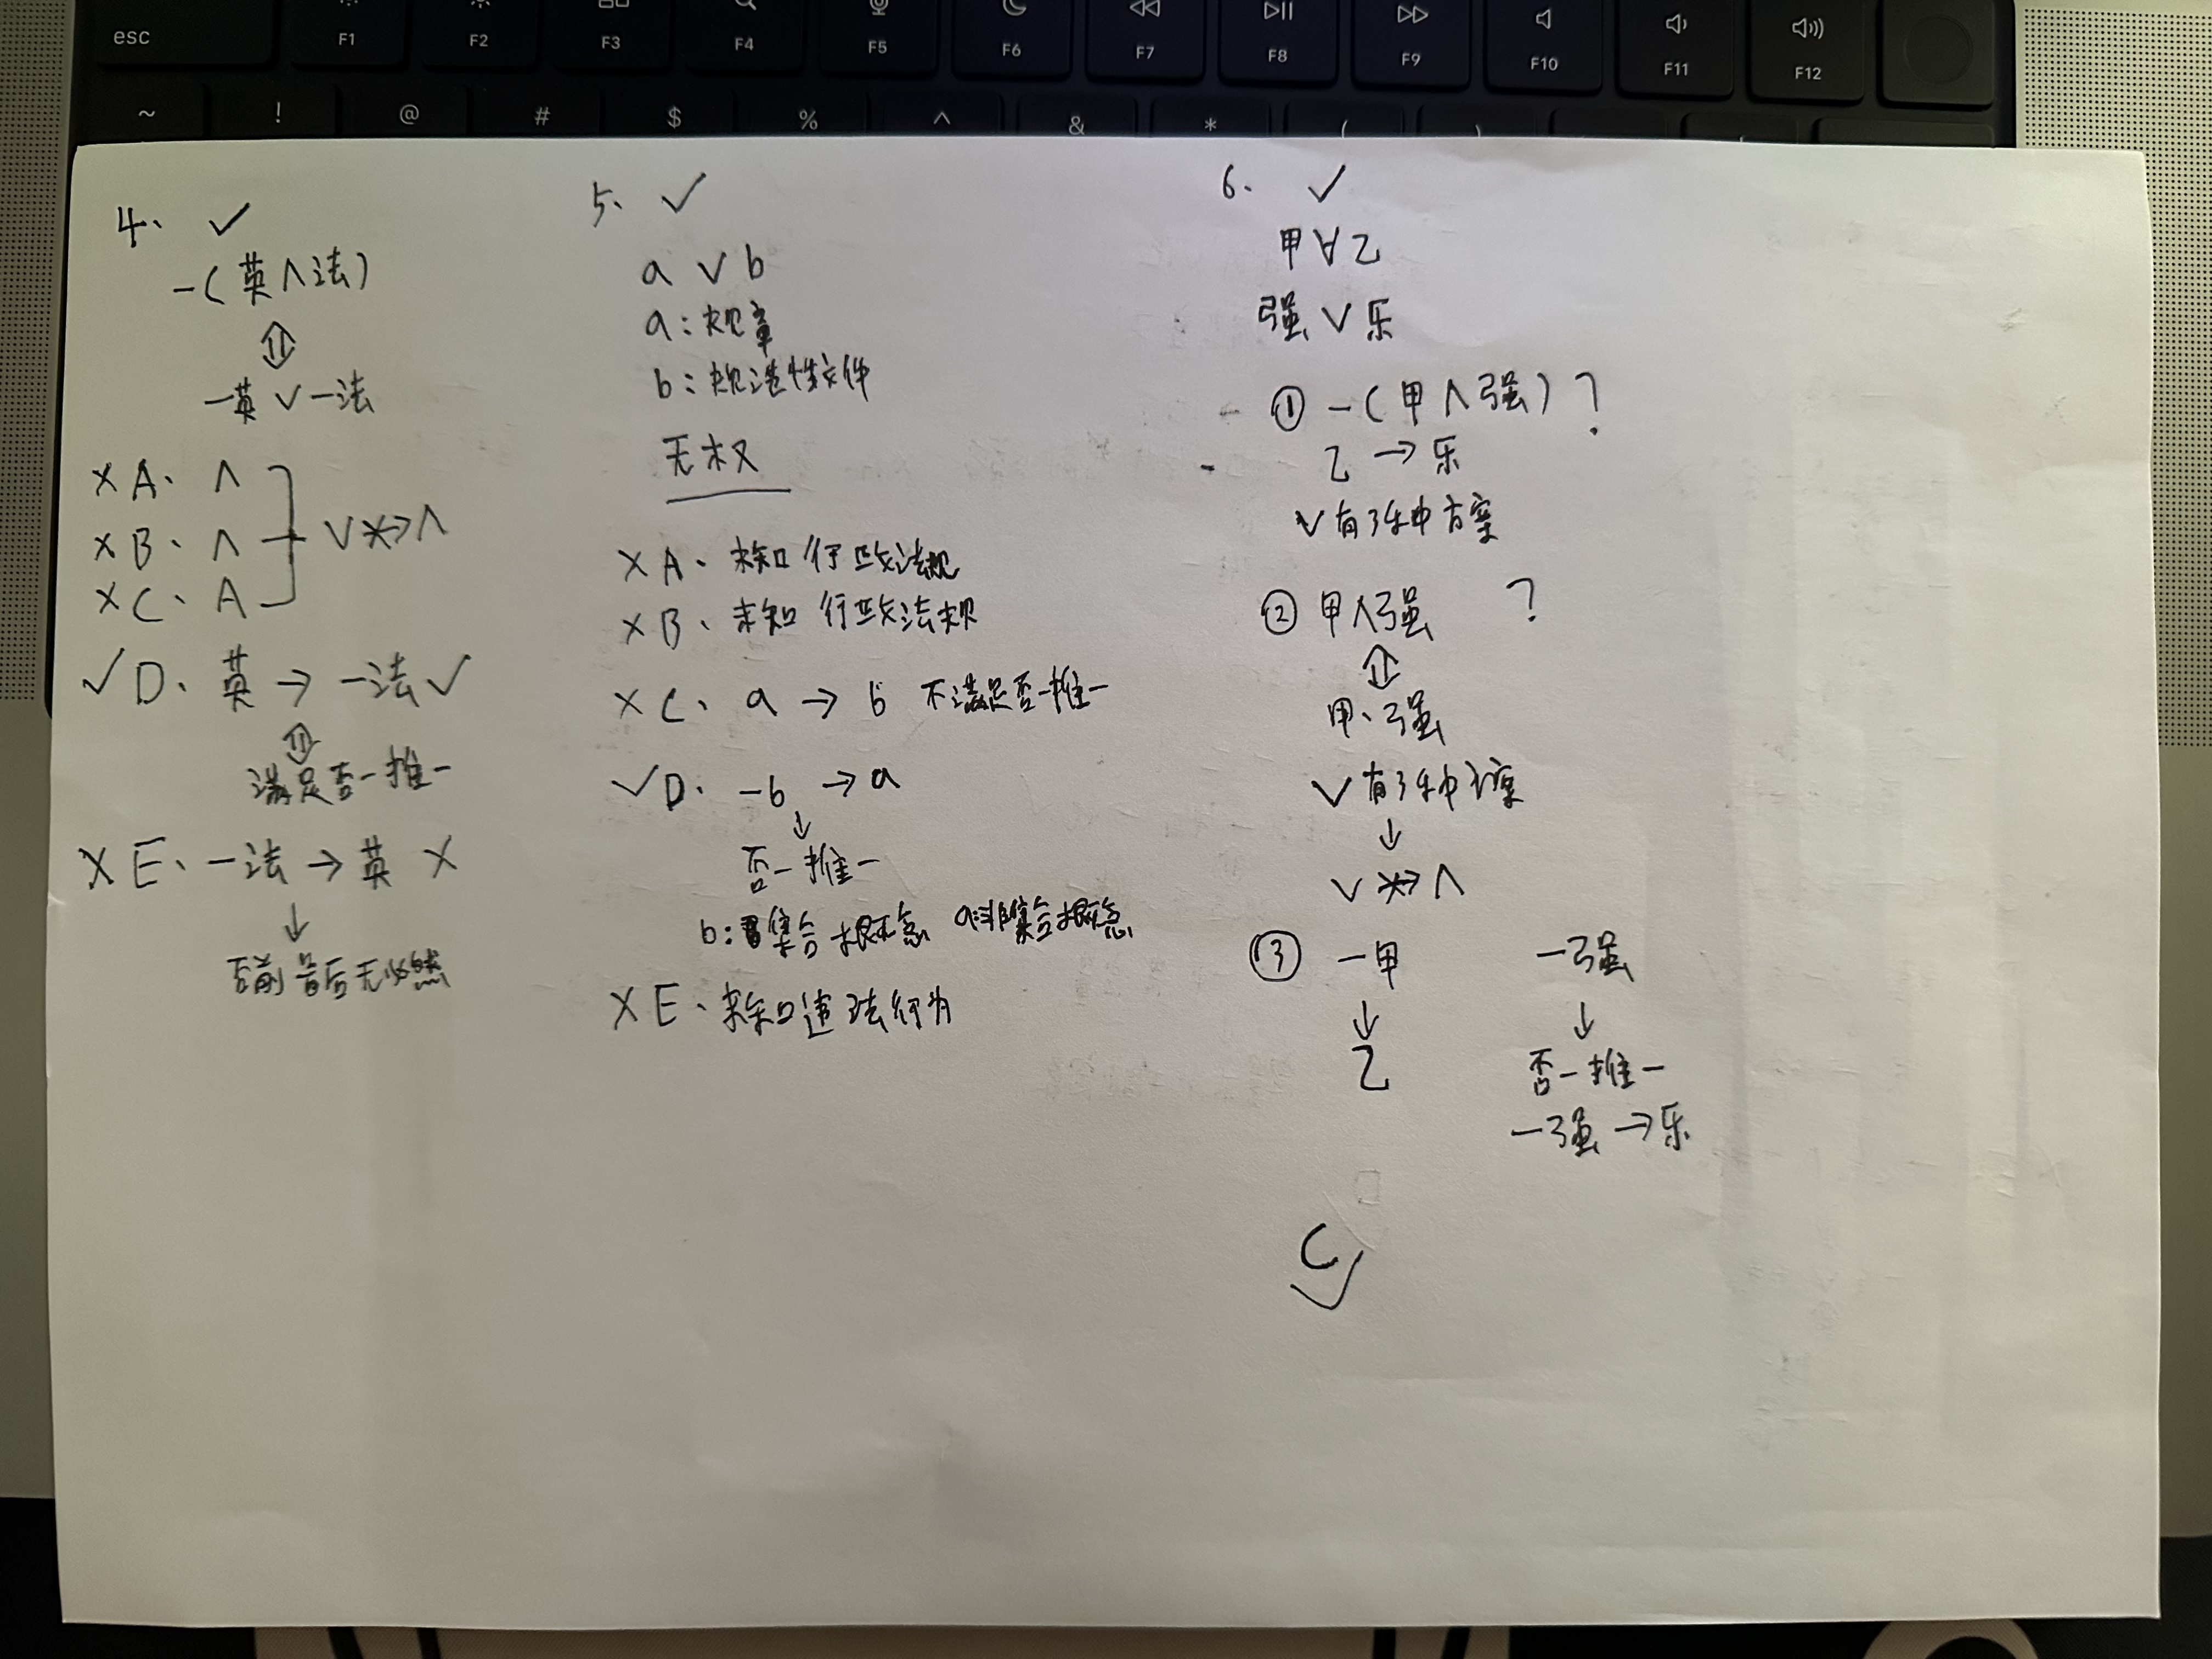 esc F1 F2 F3 F4 F5 F6 F7 F8 F9 F10 F11 F12
~ ! @ # $ % ^ & * ( )
4、 ✓
-(英∧法)
⇕
-英∨-法
× A、 ∧
× B、 ∧
× C、 ∧
∨ ↛ ∧
✓ D、 英 → -法 ✓
⇕
满足否一推一
× E、 -法 → 英 ×
↓
否前否后无必然
5、 ✓
a ∨ b
a:规章
b:规范性文件
无权
× A、 未知 行政法规
× B、 未知 行政法规
× C、 a → b 不满足否一推一
✓ D、 -b → a
↓
否一推一
b:集合概念 a:非集合概念
× E、未知违法行为
6、 ✓
甲∀乙
强∨乐
① -(甲∧强)?
乙→乐
∨有3种方案
② 甲∧强 ?
⇕
甲、强
∨有3种方案
↓
∨ ↛ ∧
③ -甲 -强
↓ ↓
乙 否一推一
-强→乐
C ✓